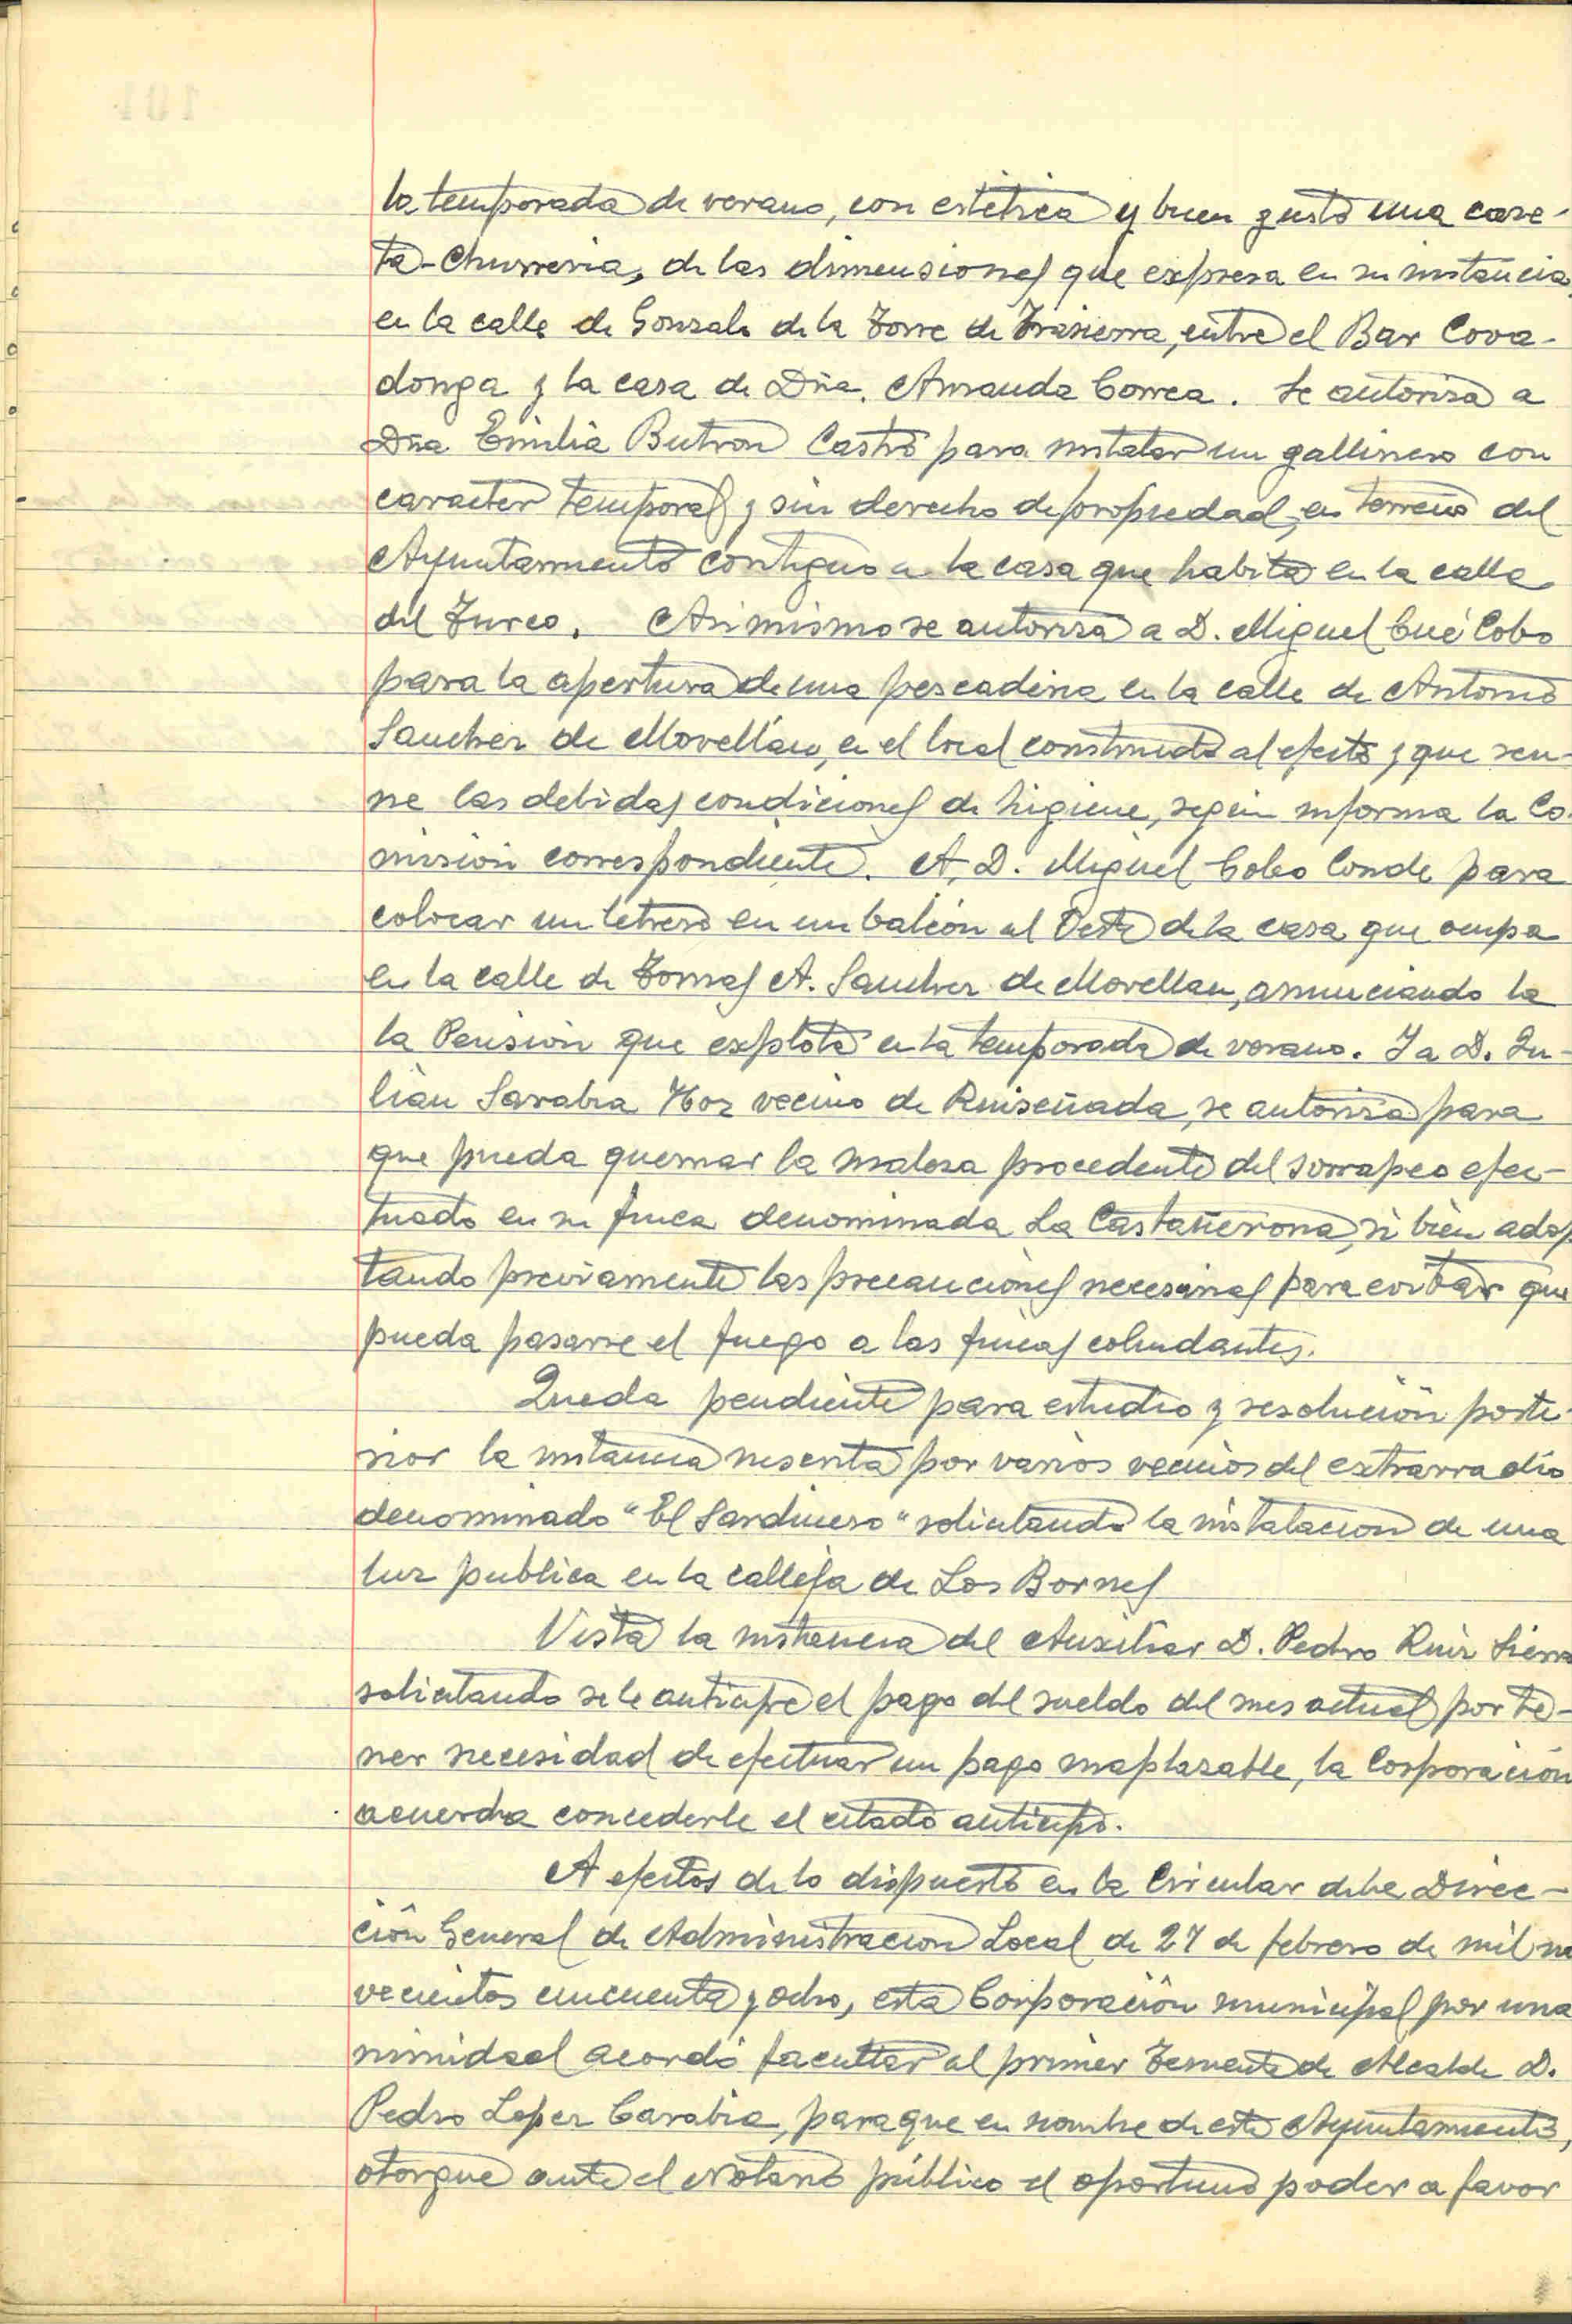 la temporada de verano, con estética y buen gusto una case-
ta-Churreria, de las dimensiones que expresa en su instancia,
en la calle de Gonzalo de la Torre de Trasierra, entre el Bar Cova-
donga y la casa de Dña. Amanda Correa. Se autoriza a
Dña Emilia Butron Castro para instalar un gallinero con
caracter temporal y sin derecho de propiedad, en terreno del
Ayuntamiento contiguo a la casa que habita en la calle
del Turco. Asi mismo se autoriza a D. Miguel Cué Cobo
para la apertura de una pescaderia en la calle de Antonio
Sanchez de Movellán, en el local construido al efecto y que reu-
ne las debidas condiciones de higiene, según informa la Co-
misión correspondiente. A, D. Miguel Cobo Conde para
colocar un letrero en un balcón al Oeste de la casa que ocupa
en la calle de Tomas A. Sanchez de Movellan, anunciando la
la Pensión que explota en la temporada de verano. Y a D. Ju-
lián Sarabia Hoz vecino de Ruiseñada, se autoriza para
que pueda quemar la maleza procedente del sorrapeo efec-
tuado en su finca denominada La Castañerona, si bien adop
tando previamente las precauciones necesarias para evitar que
pueda pasarse el fuego a las fincas colindantes.
Queda pendiente para estudio y resolución poste-
rior la instancia suscrita por varios vecinos del extrarradio
denominado "El Sardinero" solicitando la instalacion de una
luz publica en la calleja de Los Bornes
Vista la instancia del Auxiliar D. Pedro Ruiz Sierra
solicitando se le anticipe el pago del sueldo del mes actual por te-
ner necesidad de efectuar un pago inaplazable, la Corporación
acuerda concederle el citado anticipo.
A efectos de lo dispuesto en la Circular de la Direc-
ción General de Administracion Local de 27 de febrero de mil no
vecientos cincuenta y ocho, esta Corporación municipal por una
nimidad acordó facultar al primer Teniente de Alcalde D.
Pedro Lopez Carabia, para que en nombre de este Ayuntamiento,
otorgue ante el Notario público el oportuno poder a favor